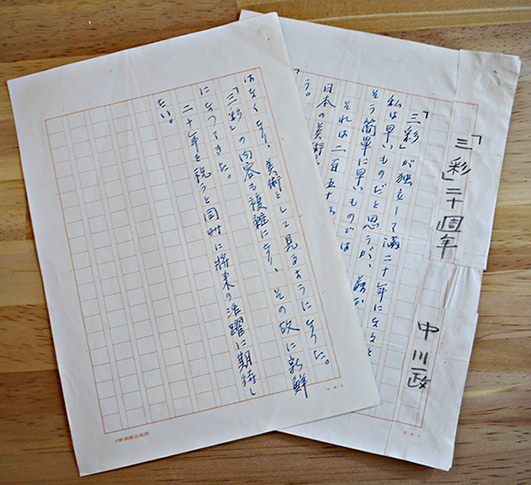 「三彩」二十週年
中川一政
「三彩」が独立して満二十年になると
私は早いものだと思うが、
そう簡単に早いものでは
それは二百五十
日本の美術
う。
「
はなくなり、美術として見るようになった。
「三彩」の内容も複雑になり、その故に新鮮
になってきた。
二十年を祝うと同時に将来の活躍に期待し
たい。